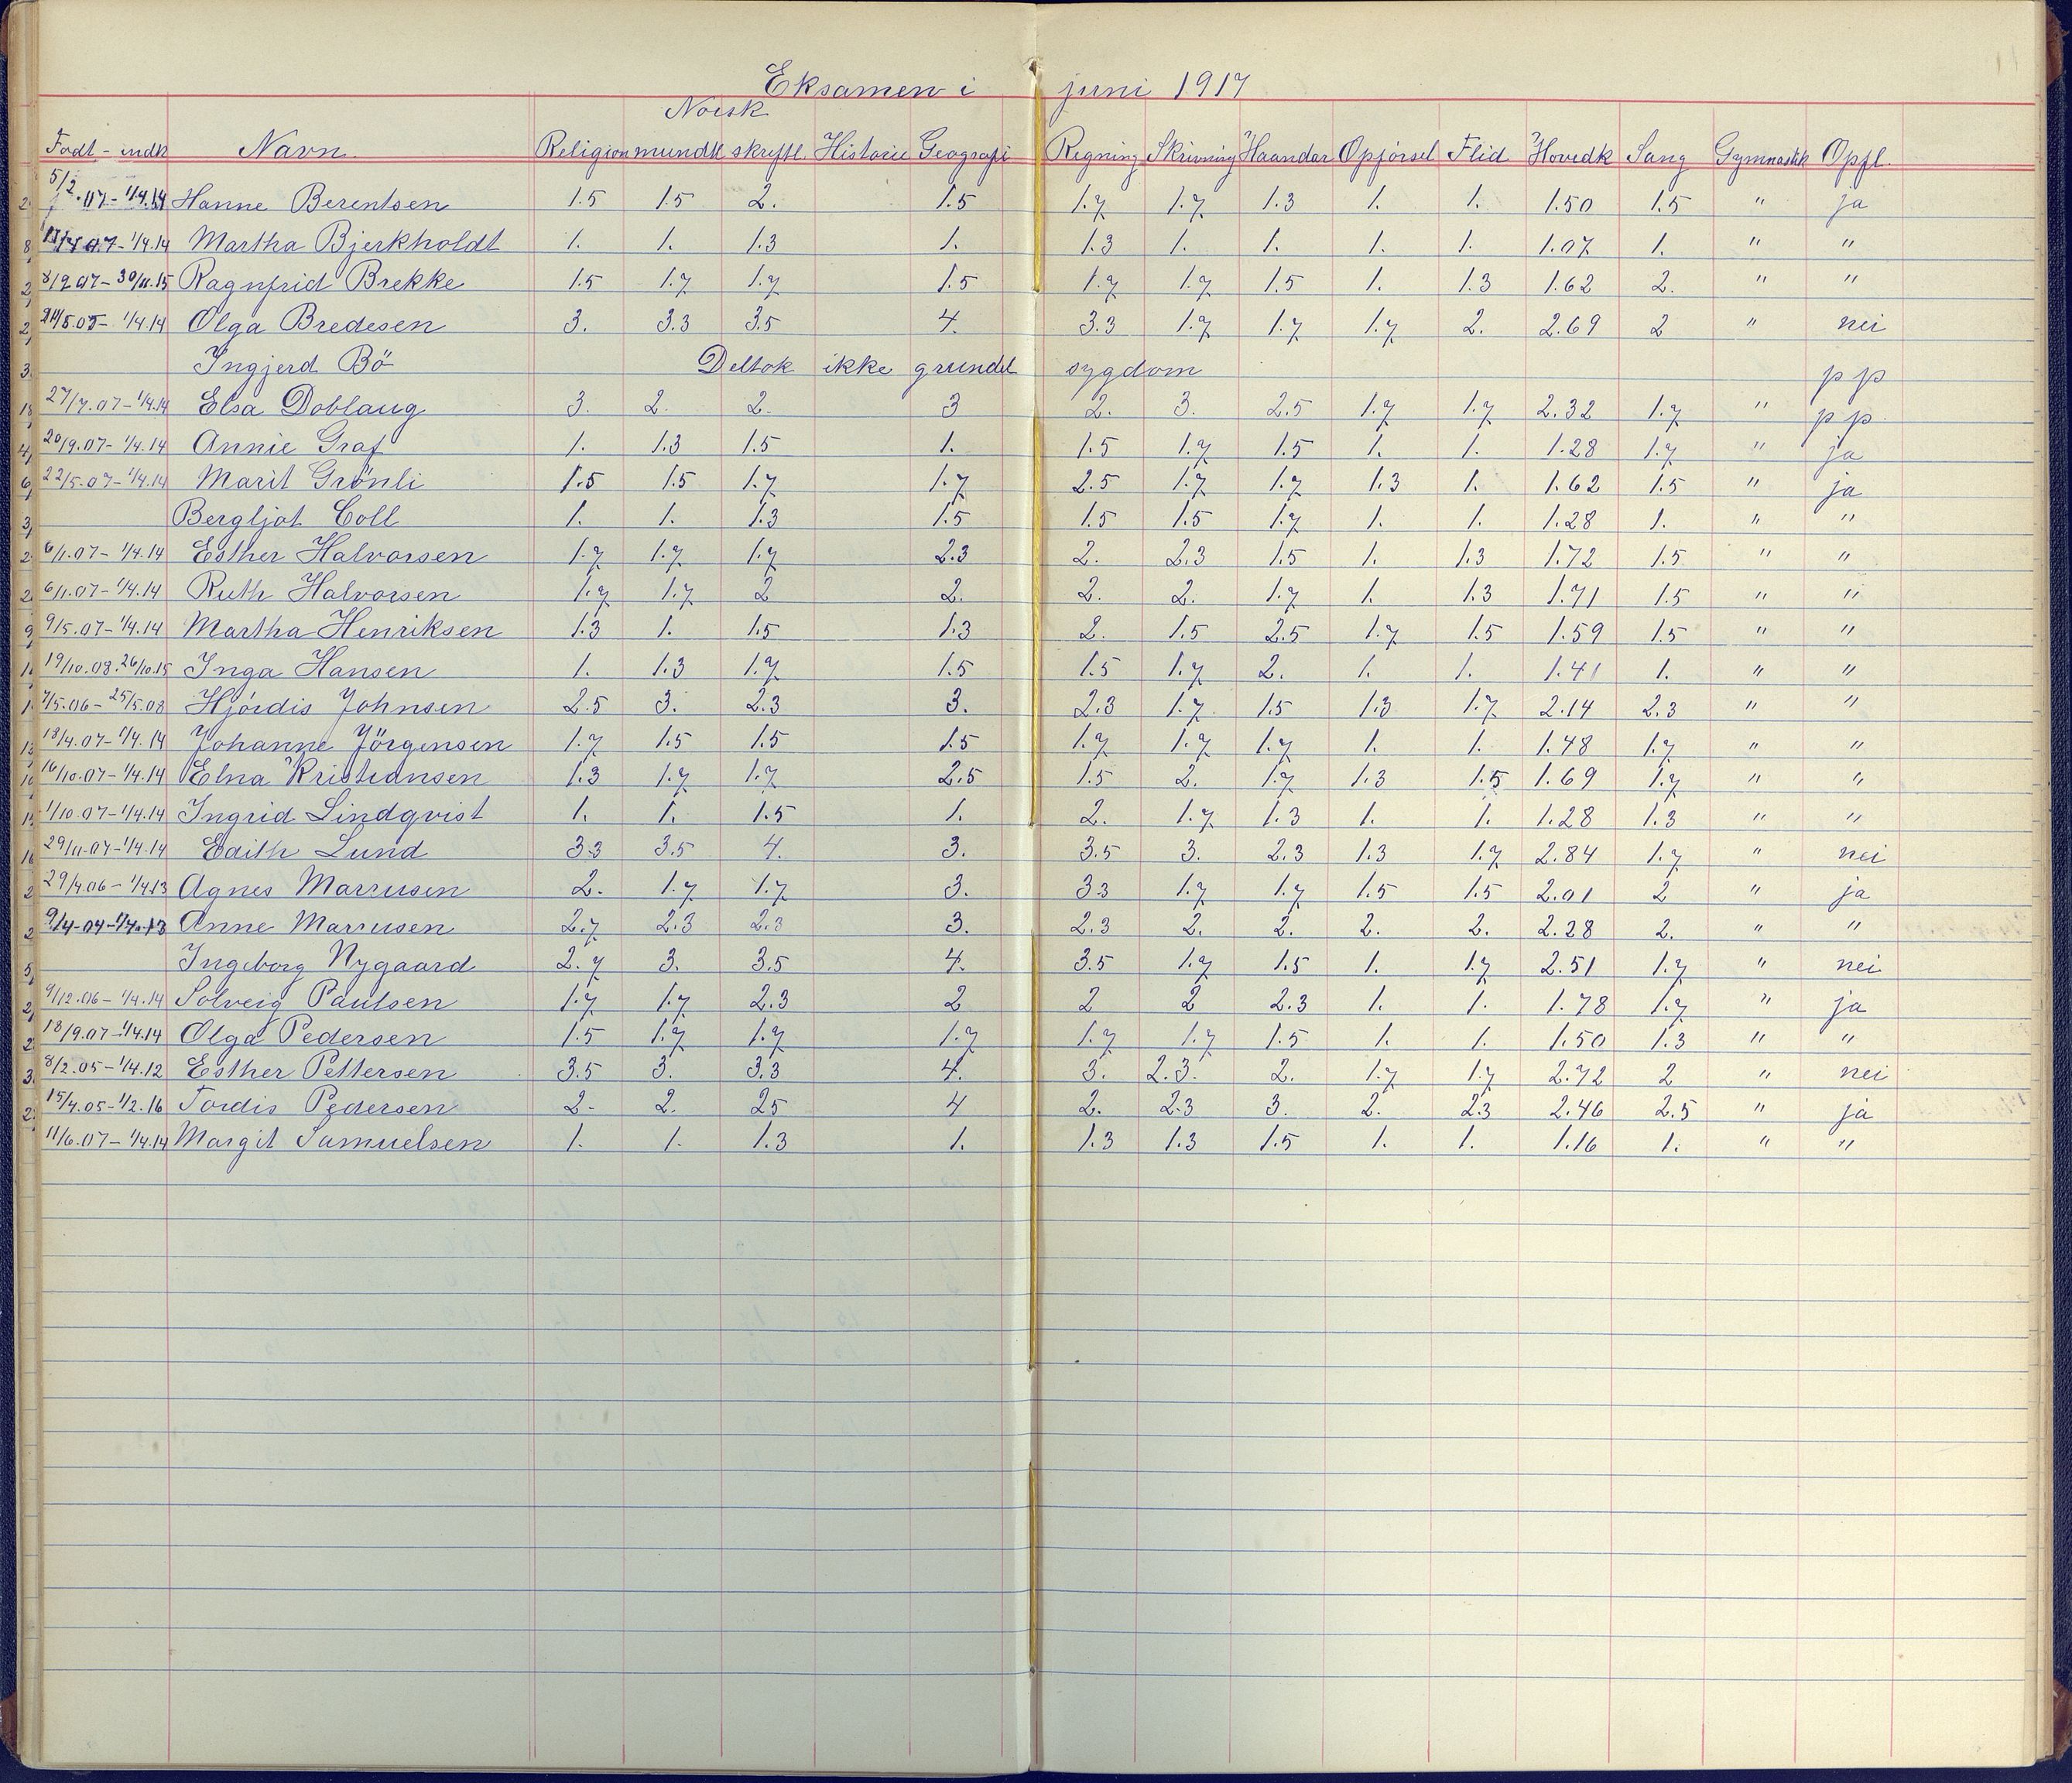 Eksamen i juni 1917
Norsk
Født - indk Navn. Religion mundtl skriftl. Historie Geografi Regning Skrivning Haandar Opførsel Flid Hovedk Sang Gymnastik Oppfl.
5/2.07- 1/4.14 Hanne Berentsen 1.5 1.5 2. 1.5 1.7 1.7 1.3 1. 1. 1.50 1.5 " ja
07- 1/4.14 Martha Bjerkholdt 1. 1. 1.3 1. 1.3 1. 1. 1. 1. 1.07 1. " "
8/9 07- 30/11.15 Ragnfrid Brekke 1.5 1.7 1.7 1.5 1.7 1.7 1.5 1. 1.3 1.62 2. " "
1/4.14 Olga Bredesen 3. 3.3 3.5 4. 3.3 1.7 1.7 1.7 2. 2.69 2 " nei
Ingjerd Bö Deltok ikke grundet sygdom p p
27/7.07- 1/4.14 Elsa Doblaug 3. 2. 2. 3 2. 3. 2.5 1.7 1.7 2.32 1.7 " p p.
20/9.07- 1/4.14 Annie Graf 1. 1.3 1.5 1. 1.5 1.7 1.5 1. 1. 1.28 1.7 " ja
22/5.07- 1/4.14 Marit Grönli 1.5 1.5 1.7 1.7 2.5 1.7 1.7 1.3 1. 1.62 1.5 " ja
Bergljot Coll 1. 1. 1.3 1.5 1.5 1.5 1.7 1. 1. 1.28 1. " "
6/1.07- 1/4.14 Esther Halvorsen 1.7 1.7 1.7 2.3 2. 2.3 1.5 1. 1.3 1.72 1.5 " "
6/1.07- 1/4.14 Ruth Halvorsen 1.7 1.7 2 2. 2. 2. 1.7 1. 1.3 1.71 1.5 " "
9/5.07- 1/4.14 Martha Henriksen 1.3 1. 1.5 1.3 2. 1.5 2.5 1.7 1.5 1.59 1.5 " "
19/10.08. 26/10.15 Inga Hansen 1. 1.3 1.7 1.5 1.5 1.7 2. 1. 1. 1.41 1. " "
7/5.06- 25/5.08 Hjördis Johnsen 2.5 3. 2.3 3. 2.3 1.7 1.5 1.3 1.7 2.14 2.3 " "
18/4.07- 1/4.14 Johanne Jörgensen 1.7 1.5 1.5 1.5 1.7 1.7 1.7 1. 1. 1.48 1.7 " "
16/10.07- 1/4.14 Elna Kristiansen 1.3 1.7 1.7 2.5 1.5 2. 1.7 1.3 1.5 1.69 1.7 " "
1/10.07- 1/4.14 Ingrid Lindqvist 1. 1. 1.5 1. 2. 1.7 1.3 1. 1. 1.28 1.3 " "
29/11.07- 1/4.14 Edith Lund 3.3 3.5 4. 3. 3.5 3. 2.3 1.3 1.7 2.84 1.7 " nei
29/4.06- 1/4.13 Agnes Marrusen 2. 1.7 1.7 3. 3.3 1.7 1.7 1.5 1.5 2.01 2 " ja
9/4-04- 1/4.13 Anne Marrusen 2.7 2.3 2.3 3. 2.3 2. 2. 2. 2. 2.28 2. " "
Ingeborg Nygaard 2.7 3. 3.5 4. 3.5 1.7 1.5 1. 1.7 2.51 1.7 " nei
9/12.06- 1/4.14 Solveig Paulsen 1.7 1.7 2.3 2 2 2 2.3 1. 1. 1.78 1.7 " ja
18/9.07- 1/4.14 Olga Pedersen 1.5 1.7 1.7 1.7 1.7 1.7 1.5 1. 1. 1.50 1.3 " "
8/2.05- 1/4.12 Esther Pettersen 3.5 3. 3.3 4. 3. 2.3. 2. 1.7 1.7 2.72 2 " nei
15/4.05- 1/2.16 Tordis Pedersen 2. 2. 25 4 2. 2.3 3. 2. 2.3 2.46 2.5 " ja
11/6.07- 1/4.14 Margit Samuelsen 1. 1. 1.3 1. 1.3 1.3 1.5 1. 1. 1.16 1. " "